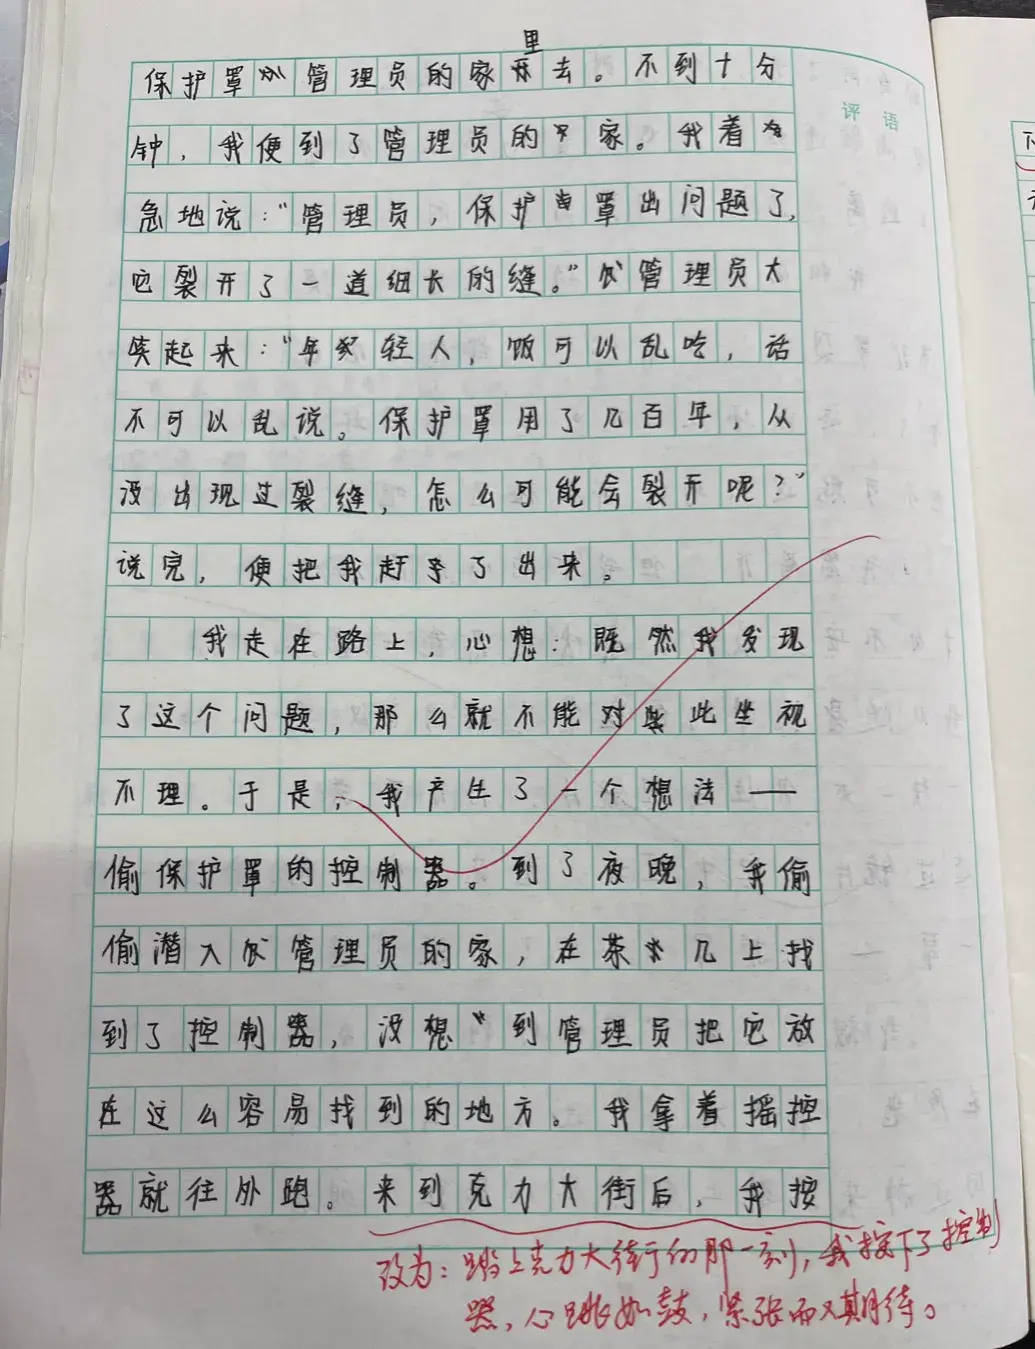 里
保护罩管理员的家去。不到十分
评语
钟，我便到了管理员的家。我着
急地说："管理员，保护罩出问题了，
它裂开了一道细长的缝。"管理员大
笑起来："年轻人，饭可以乱吃，话
不可以乱说。保护罩用了几百年，从
没出现过裂缝，怎么可能会裂开呢？"
说完，便把我赶了出来。
我走在路上，心想：既然我发现
了这个问题，那么就不能对此坐视
不理。于是，我产生了一个想法——
偷保护罩的控制器。到了夜晚，我偷
偷潜入管理员的家，在茶几上找
到了控制器，没想到管理员把它放
在这么容易找到的地方。我拿着摇控
器就往外跑。来到克力大街后，我按
改为：踏上克力大街的那一刻，我按下了控制
器，心跳如鼓，紧张而又期待。